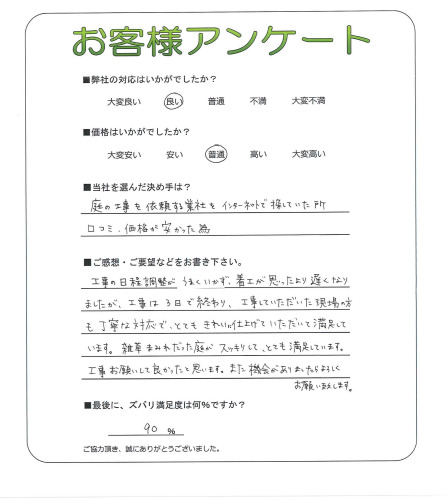 お客様アンケート
■弊社の対応はいかがでしたか？
大変良い 良い 普通 不満 大変不満
■価格はいかがでしたか？
大変安い 安い 普通 高い 大変高い
■当社を選んだ決め手は？
庭の工事を依頼する業社をインターネットで探していた所
口コミ、価格が安かった為
■ご感想・ご要望などをお書き下さい。
工事の日程調整がうまくいかず、着工が思ったより遅くなり
ましたが、工事は3日で終わり、工事していただいた現場の方
も丁寧な対応で、とてもきれいに仕上げていただいて満足して
います。雑草まみれだった庭がスッキリして、とても満足しています。
工事お願いして良かったと思います。また機会がありましたらよろしく
お願い致します。
■最後に、ズバリ満足度は何%ですか？
90 %
ご協力頂き、誠にありがとうございました。